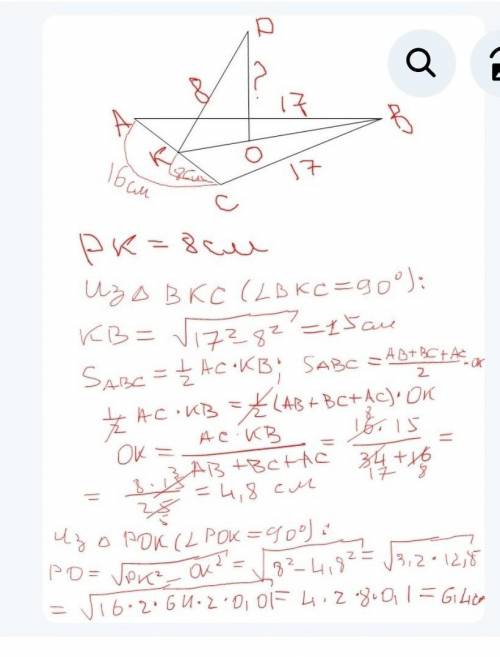 P
8
?
17
A
B
K
O
8см
17
16см
C
PK = 8 см
Из △ BKC (∠BKC = 90°):
KB = √17² - 8² = 15 см
S ABC = ½ AC · KB; S ABC = AB + BC + AC / 2 · OK
½ AC · KB = ½ (AB + BC + AC) · OK
OK = AC · KB / AB + BC + AC = 16 · 15 / 34 + 16 =
= 8 · 15 / 25 = 4,8 см
Из △ POK (∠POK = 90°):
PO = √PK² - OK² = √8² - 4,8² = √3,2 · 12,8
= √16 · 2 · 64 · 2 · 0,01 = 4 · 2 · 8 · 0,1 = 6,4 см